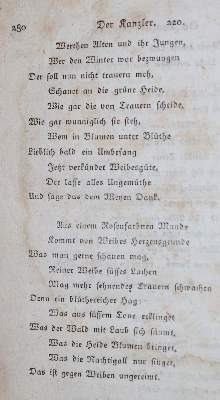 280 Der Kanzler. 220.
Werthen Alten und ihr Jungen,
Wer den Winter wor bezwungen
Der soll nun nicht trauern meh,
Schauet an die grüne Heide,
Wie gar die von Trauern scheide,
Wie gar wunniglich sie steh,
Wem in Blumen unter Blüthe
Lieblich bald ein Umbefang
Jetzt verkündet Weibesgüte,
Der lasse alles Ungemüthe
Und sage das dem Meyen Dank.
Aus einem Rosenfarbnen Munde
Kommt von Weibes Herzensgrunde
Was man gerne schauen mag,
Reiner Weibe süsses Lachen
Mag mehr sehnendes Trauern schwachen
Denn ein blüthreicher Hag:
Was aus süssem Tone erklinget
Was der Wald mit Laub sich säumt,
Was die Heide Blumen bringet,
Was die Nachtigall nur singet,
Das ist gegen Weiben ungereimt.